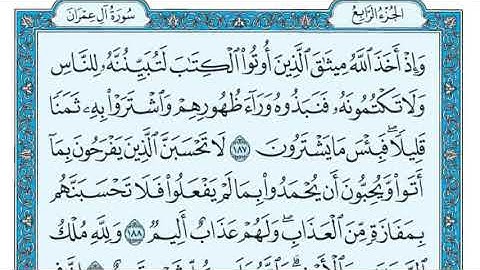 الجزء الرابع
سورة آل عمران
وَإِذْ أَخَذَ ٱللَّهُ مِيثَٰقَ ٱلَّذِينَ أُوتُوا۟ ٱلْكِتَٰبَ لَتُبَيِّنُنَّهُۥ لِلنَّاسِ
وَلَا تَكْتُمُونَهُۥ فَنَبَذُوهُ وَرَآءَ ظُهُورِهِمْ وَٱشْتَرَوْا۟ بِهِۦ ثَمَنًا
قَلِيلًا ۖ فَبِئْسَ مَا يَشْتَرُونَ ١٨٧ لَا تَحْسَبَنَّ ٱلَّذِينَ يَفْرَحُونَ بِمَآ
أَتَوا۟ وَّيُحِبُّونَ أَن يُحْمَدُوا۟ بِمَا لَمْ يَفْعَلُوا۟ فَلَا تَحْسَبَنَّهُم
بِمَفَازَةٍ مِّنَ ٱلْعَذَابِ ۖ وَلَهُمْ عَذَابٌ أَلِيمٌ ١٨٨ وَلِلَّهِ مُلْكُ